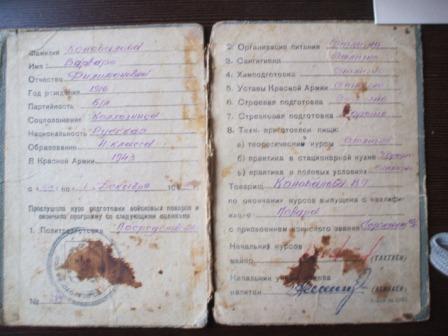 Фамилия Коновалова
Имя Варвара
Отчество Филимоновна
Год рождения 1916
Партийность б/п
Соцположение Колхозница
Национальность Русская
Образование 4 класса
В Красной Армии 1943
Декабря
Прослушала курс подготовки войсковых поваров и
окончила программу со следующими оценками
1. Политподготовка Посредств.
№
2. Организация питания Отлично
3. Санитария Отлично
4. Химподготовка Отлично
5. Уставы Красной Армии
6. Строевая подготовка
7. Стрелковая подготовка Хорошо
8. Техн. приготовлен. пищи:
а) теоретический курс Отлично
б) практика в стационарной кухне
в) практика в полевых условиях
Товарищ Коновалова В.Ф.
по окончании курсов выпущена с квалифи-
кацией Повара
с присвоением воинского звания
Начальник курсов
майор
Начальник
капитан